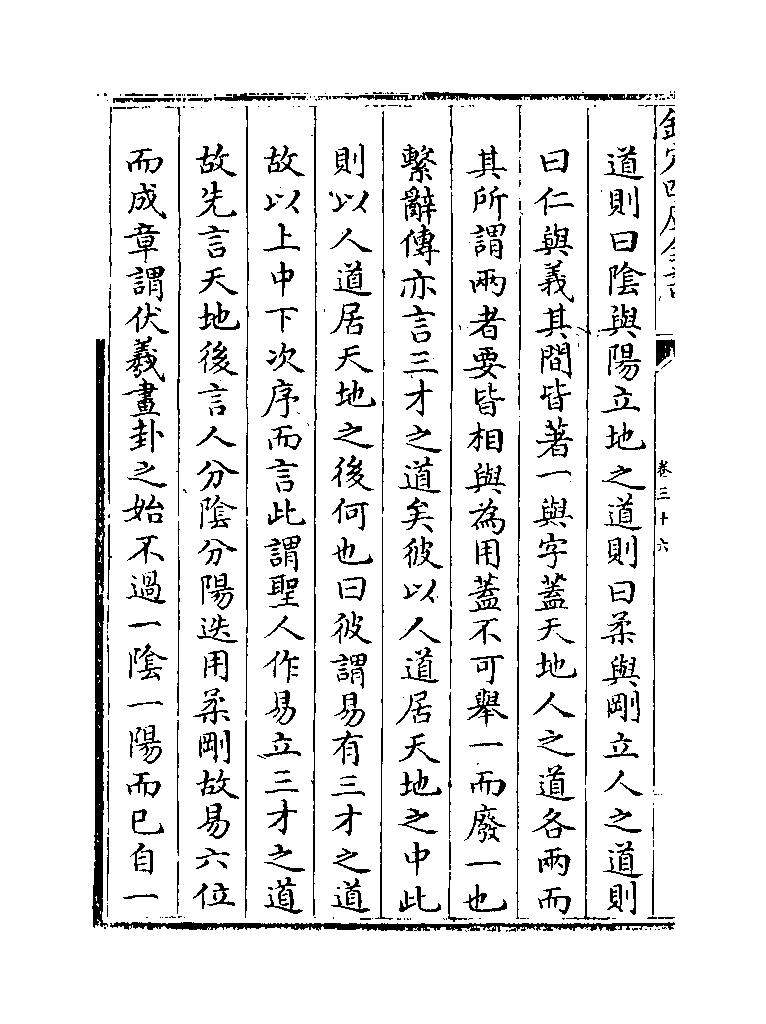 欽定四庫全書
卷三十六
道則曰陰與陽立地之道則曰柔與剛立人之道則
曰仁與義其間皆著一與字蓋天地人之道各兩而
其所謂兩者要皆相與為用蓋不可舉一而廢一也
繫辭傳亦言三才之道矣彼以人道居天地之中此
則以人道居天地之後何也曰彼謂易有三才之道
故以上中下次序而言此謂聖人作易立三才之道
故先言天地後言人分陰分陽迭用柔剛故易六位
而成章謂伏羲畫卦之始不過一陰一陽而已自一